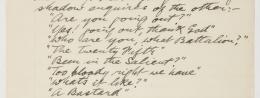 shadow enquires of the other:-
"Are you going out?"
"Yes! going out, thank God"
"Who are you, what Battalion?"
"The Twenty Fifth"
"Been in the Salient?"
"Too bloody right we have"
"What's it like?"
"A Bastard"